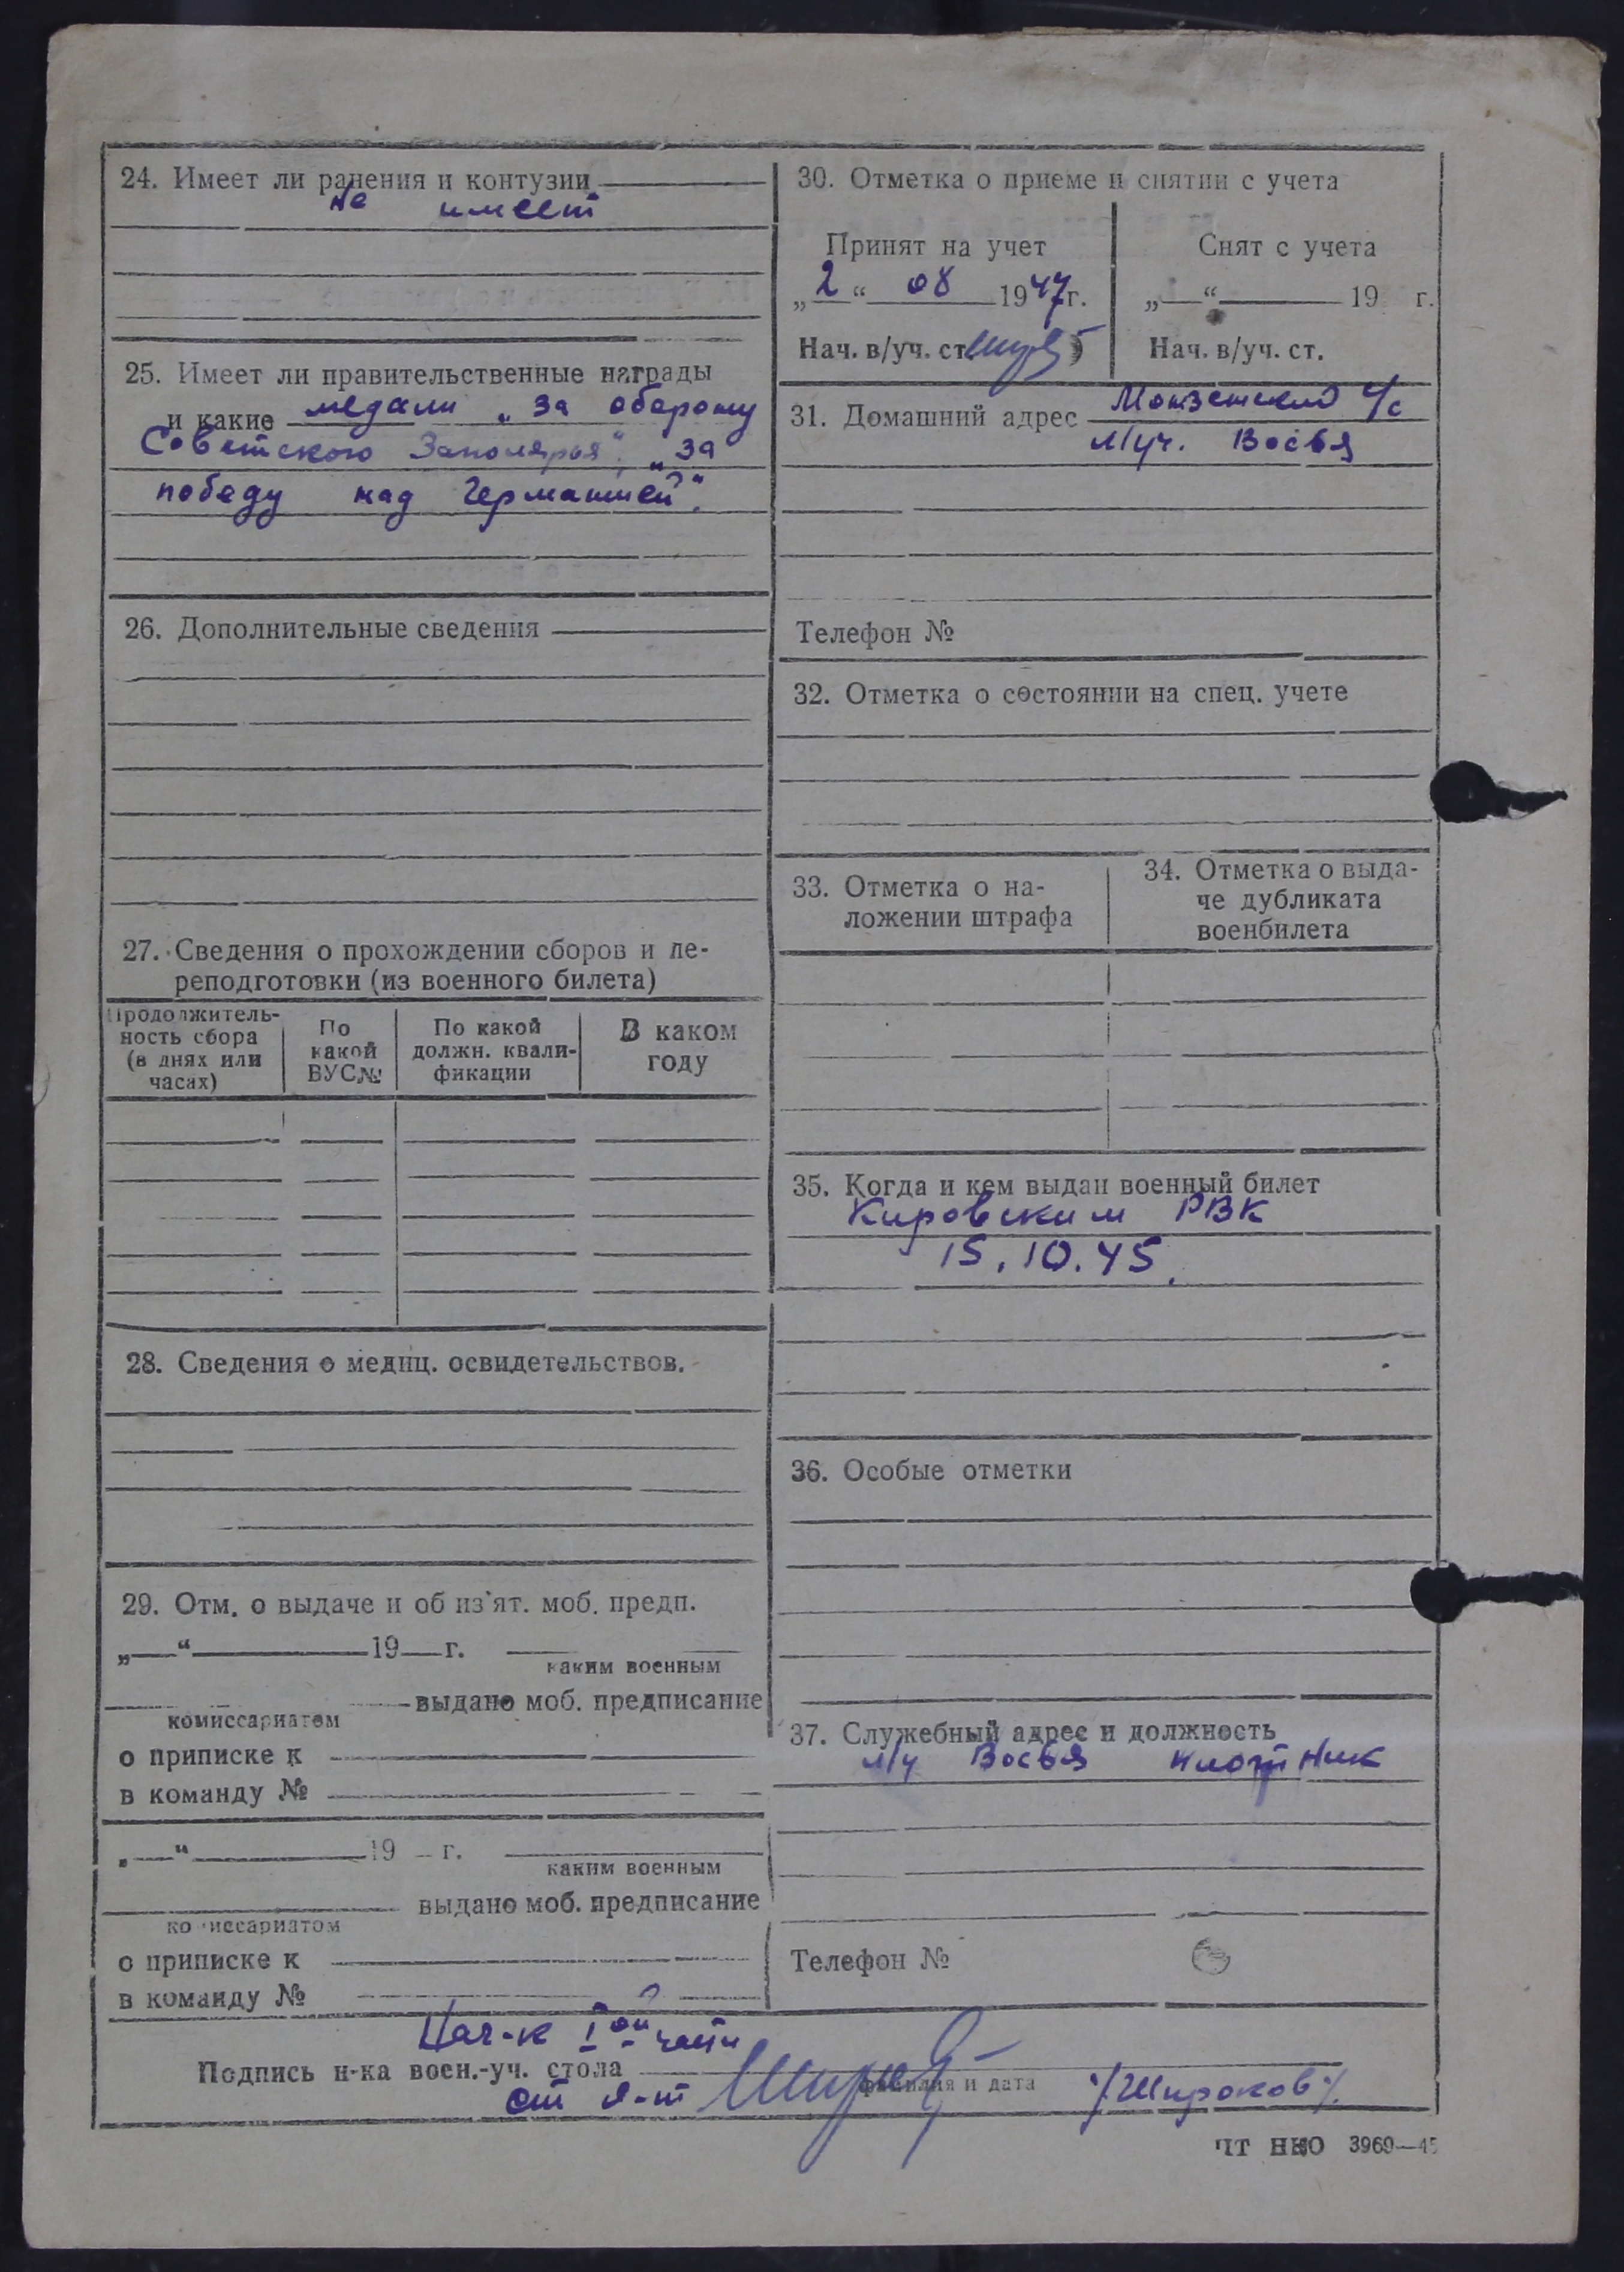 24. Имеет ли ранения и контузии
не имеет
25. Имеет ли правительственные награды
и какие медали „за оборону
Советского Заполярья", „за
победу над Германией".
26. Дополнительные сведения
27. Сведения о прохождении сборов и пе-
реподготовки (из военного билета)
Продолжитель-
ность сбора
(в днях или
часах)
По
какой
ВУС№
По какой
должн. квали-
фикации
В каком
году
28. Сведения о медиц. освидетельствов.
29. Отм. о выдаче и об из'ят. моб. предп.
„ “ 19 г.
каким военным
выдано моб. предписание
комиссариатом
о приписке к
в команду №
„ “ 19 г.
каким военным
выдано моб. предписание
комиссариатом
о приписке к
в команду №
30. Отметка о приеме и снятии с учета
Принят на учет
„2“ 08 1947г.
Нач. в/уч. ст.
Снят с учета
„ “ 19 г.
Нач. в/уч. ст.
31. Домашний адрес с/с
л/уч. Восья
Телефон №
32. Отметка о состоянии на спец. учете
33. Отметка о на-
ложении штрафа
34. Отметка о выда-
че дубликата
военбилета
35. Когда и кем выдан военный билет
Кировским РВК
15.10.45.
36. Особые отметки
37. Служебный адрес и должность
л/у Восья плотник
Телефон №
Нач-к I ой части
Подпись н-ка воен.-уч. стола
фамилия и дата
ст л-т /Широков/.
ЧТ НКО 3969—45